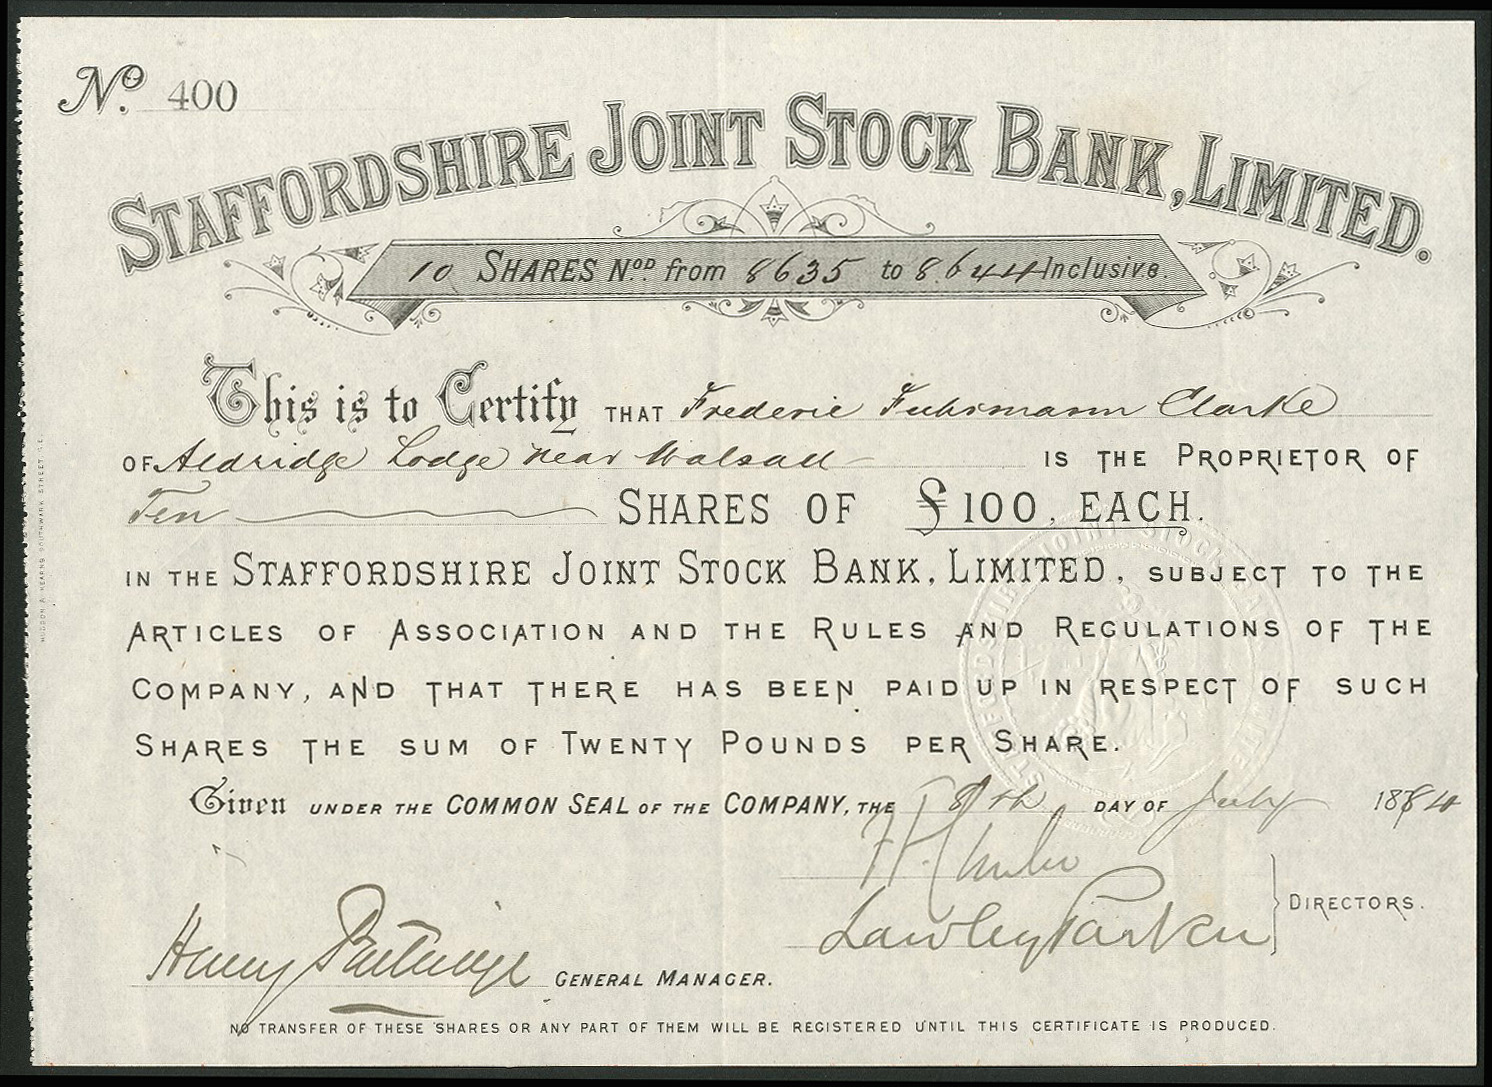 No. 400
STAFFORDSHIRE JOINT STOCK BANK, LIMITED.
10 SHARES NOD. from 8635 to 8644 Inclusive.
This is to Certify THAT Frederic Fuhrmann Clarke
OF Aldridge Lodge near Walsall IS THE PROPRIETOR OF
Ten SHARES OF £100, EACH.
IN THE STAFFORDSHIRE JOINT STOCK BANK, LIMITED, SUBJECT TO THE
ARTICLES OF ASSOCIATION AND THE RULES AND REGULATIONS OF THE
COMPANY, AND THAT THERE HAS BEEN PAID UP IN RESPECT OF SUCH
SHARES THE SUM OF TWENTY POUNDS PER SHARE.
Given UNDER THE COMMON SEAL OF THE COMPANY, THE 8th DAY OF July 1884
Lawley Parker
DIRECTORS.
Henry Partridge GENERAL MANAGER.
NO TRANSFER OF THESE SHARES OR ANY PART OF THEM WILL BE REGISTERED UNTIL THIS CERTIFICATE IS PRODUCED.
STAFFORDSHIRE JOINT STOCK BANK LIMITED
KEARNS SOUTHWARK STREET, S.E.